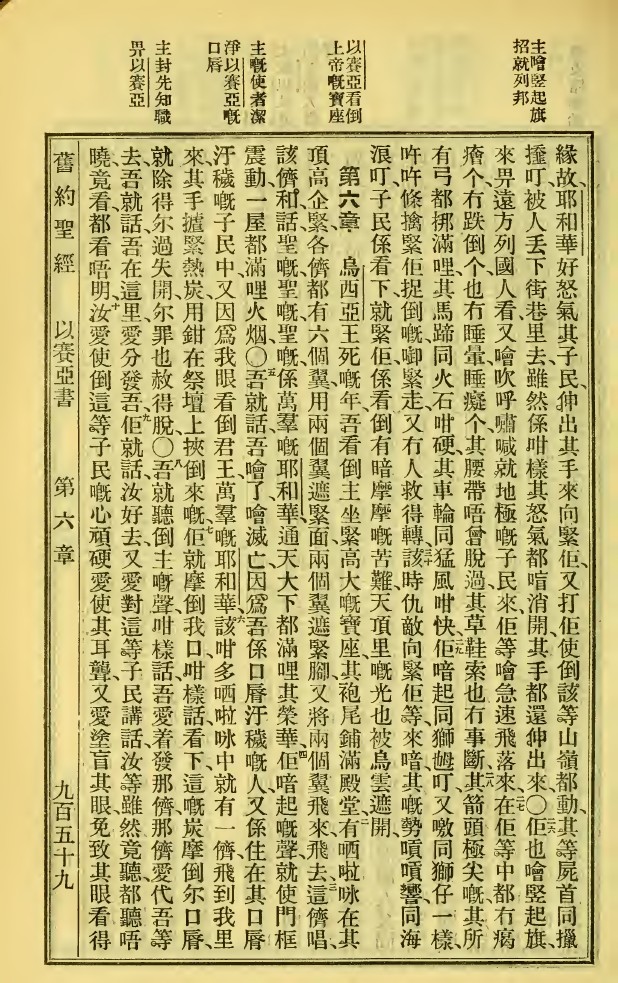 主噲竪起旗
招就列邦
以賽亞看倒
上帝嘅寶座
主嘅使者潔
淨以賽亞嘅
口唇
主封先知職
畀以賽亞
緣故、耶和華好怒氣其子民、伸出其手來向緊佢、又打佢使倒該等山嶺都動、其等屍首同擸
𢶍叮被人丟下街巷里去、雖然係咁樣、其怒氣都唔消開、其手都還伸出來、○佢也噲竪起旗、
來畀遠方列國人看、又噲吹呼嘯喊就地極嘅子民來、佢等噲急速飛落來、在佢等中都冇癘
癐个、冇跌倒个、也冇睡暈睡癡个、其腰帶唔曾脫過、其草鞋索也冇事斷、其箭頭極尖嘅、其所
有弓都挷滿哩、其馬蹄同火石咁硬、其車輪同猛風咁快、佢喑起同獅𡜵叮、又噭同獅仔一樣、
吽吽條擒緊佢捉倒嘅啣緊走、又冇人救得轉、該時仇敵向緊佢等來喑、其嘅勢嗊嗊響同海
浪叮、子民係看下就緊、佢係看倒有暗摩摩嘅苦難、天頂里嘅光也被烏雲遮開、
第六章 烏西亞王死嘅年、吾看倒主坐緊高大嘅寶座、其袍尾鋪滿殿堂、有哂啦㕲在其
頂高企緊、各儕都有六個翼、用兩個翼遮緊面、兩個翼遮緊腳、又將兩個翼飛來飛去、這儕唱、
該儕和、話聖嘅聖嘅聖嘅、係萬羣嘅耶和華、通天大下都滿哩其榮華、佢喑起嘅聲就使門框
震動、一屋都滿哩火烟、○吾就話、吾噲了噲滅亡、因爲吾係口唇汙穢嘅人、又係住在其口唇
汙穢嘅子民中、又因爲我眼看倒君王、萬羣嘅耶和華、該咁多哂啦㕲中就有一儕飛到我里
來、其手攎緊熱炭、用鉗在祭壇上挾倒來嘅、佢就摩倒我口、咁樣話、看下、這嘅炭摩倒尔口唇、
就除得尔過失開、尔罪也赦得脫、○吾就聽倒主嘅聲咁樣話、吾愛着發那儕、那儕愛代吾等
去、吾就話、吾在這里、愛分發吾、佢就話、汝好去、又愛對這等子民講話、汝等雖然竟聽、都聽唔
曉、竟看都看唔明、汝愛使倒這等子民嘅心頑硬、愛使其耳聾、又愛塗盲其眼、免致其眼看得
舊約聖經 以賽亞書 第六章 九百五十九